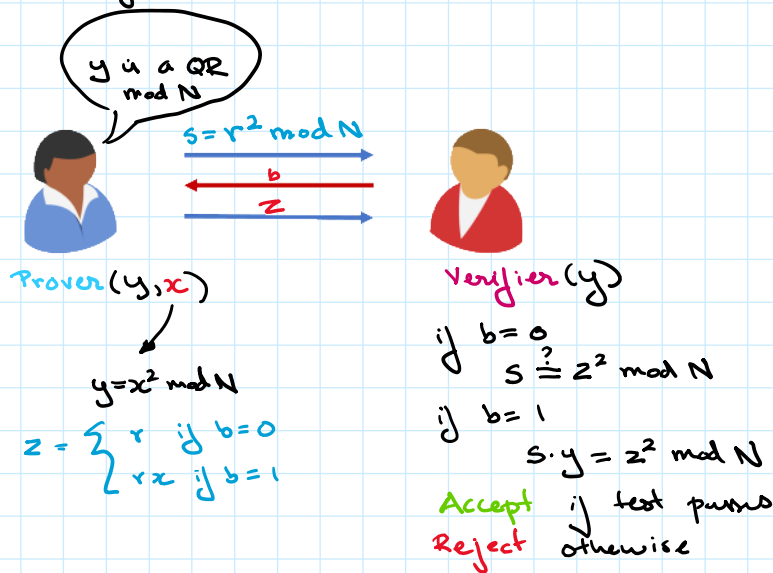 y is a QR
mod N
s = r² mod N
b
z
Prover (y, x)
y = x² mod N
z = { r if b = 0
rx if b = 1
Verifier (y)
if b = 0
s ≟ z² mod N
if b = 1
s·y = z² mod N
Accept if test passes
Reject otherwise